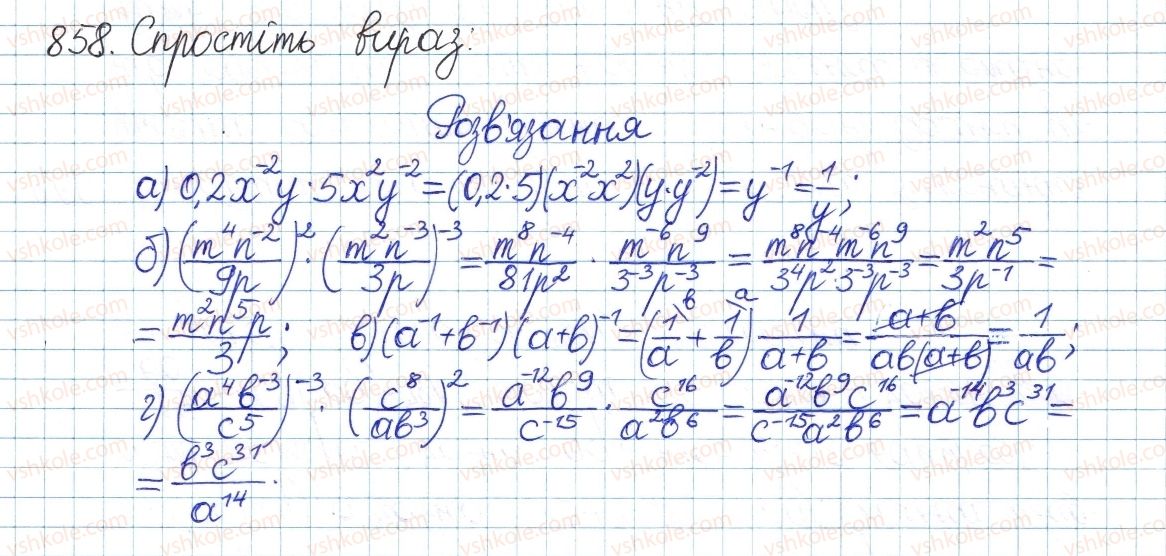 858. Спростіть вираз:
Розв'язання
а) 0,2x⁻²y · 5x²y⁻² = (0,2·5)(x⁻²x²)(y·y⁻²) = y⁻¹ = 1/y;
б) (m⁴n⁻²/9p)² · (m²n⁻³/3p)⁻³ = m⁸n⁻⁴/81p² · m⁻⁶n⁹/3⁻³p⁻³ = m⁸n⁻⁴m⁻⁶n⁹/3⁴p²·3⁻³p⁻³ = m²n⁵/3p⁻¹ =
= m²n⁵p/3; в) (a⁻¹+b⁻¹)(a+b)⁻¹ = (1/a + 1/b) 1/(a+b) = (a+b)/(ab(a+b)) = 1/ab;
г) (a⁴b⁻³/c⁵)⁻³ · (c⁸/ab³)² = a⁻¹²b⁹/c⁻¹⁵ · c¹⁶/a²b⁶ = a⁻¹²b⁹c¹⁶/c⁻¹⁵a²b⁶ = a⁻¹⁴b³c³¹ =
= b³c³¹/a¹⁴.